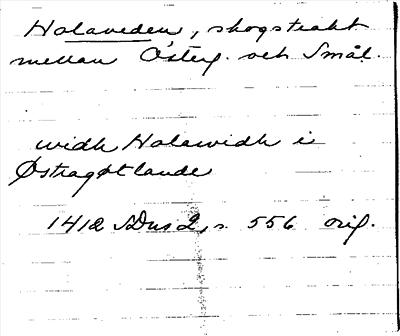 Holaveden, skogstrakt
mellan Österg. och Smål.
widh Holawidh i
Østragøtlande
1412 SDns 2, s. 556 orig.